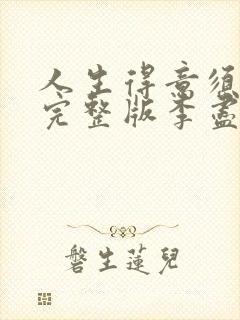 人生得意须
完整版李盡
磐生蓮兒